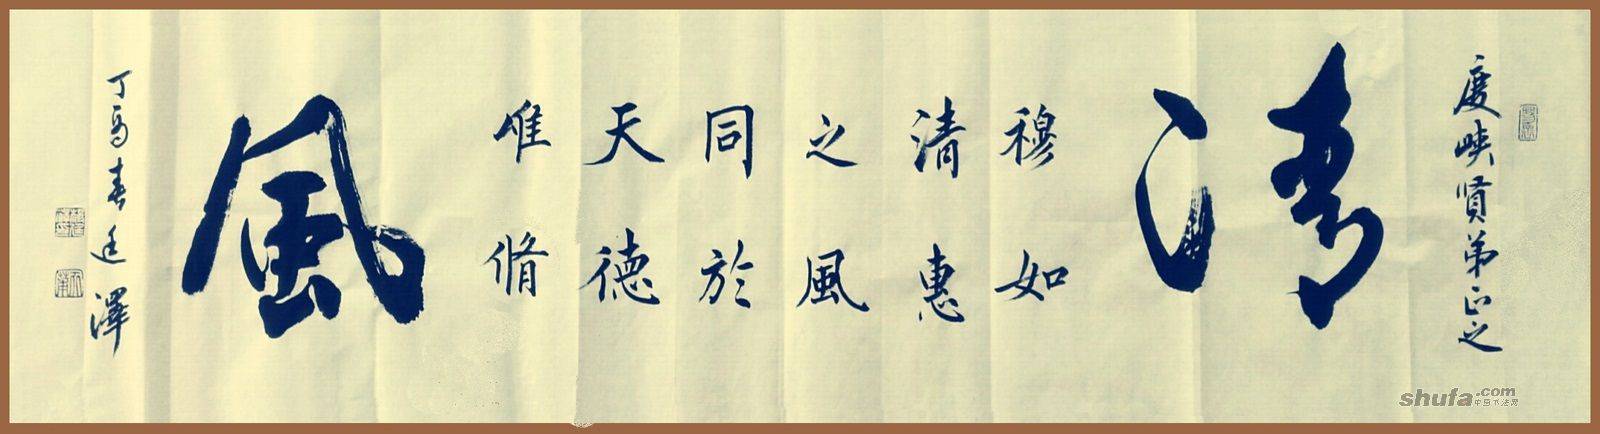 度峡贤弟正之
清
穆如
清惠
之風
同於
天德
唯脩
風
丁酉春廷澤
shufa.com
中国书法网